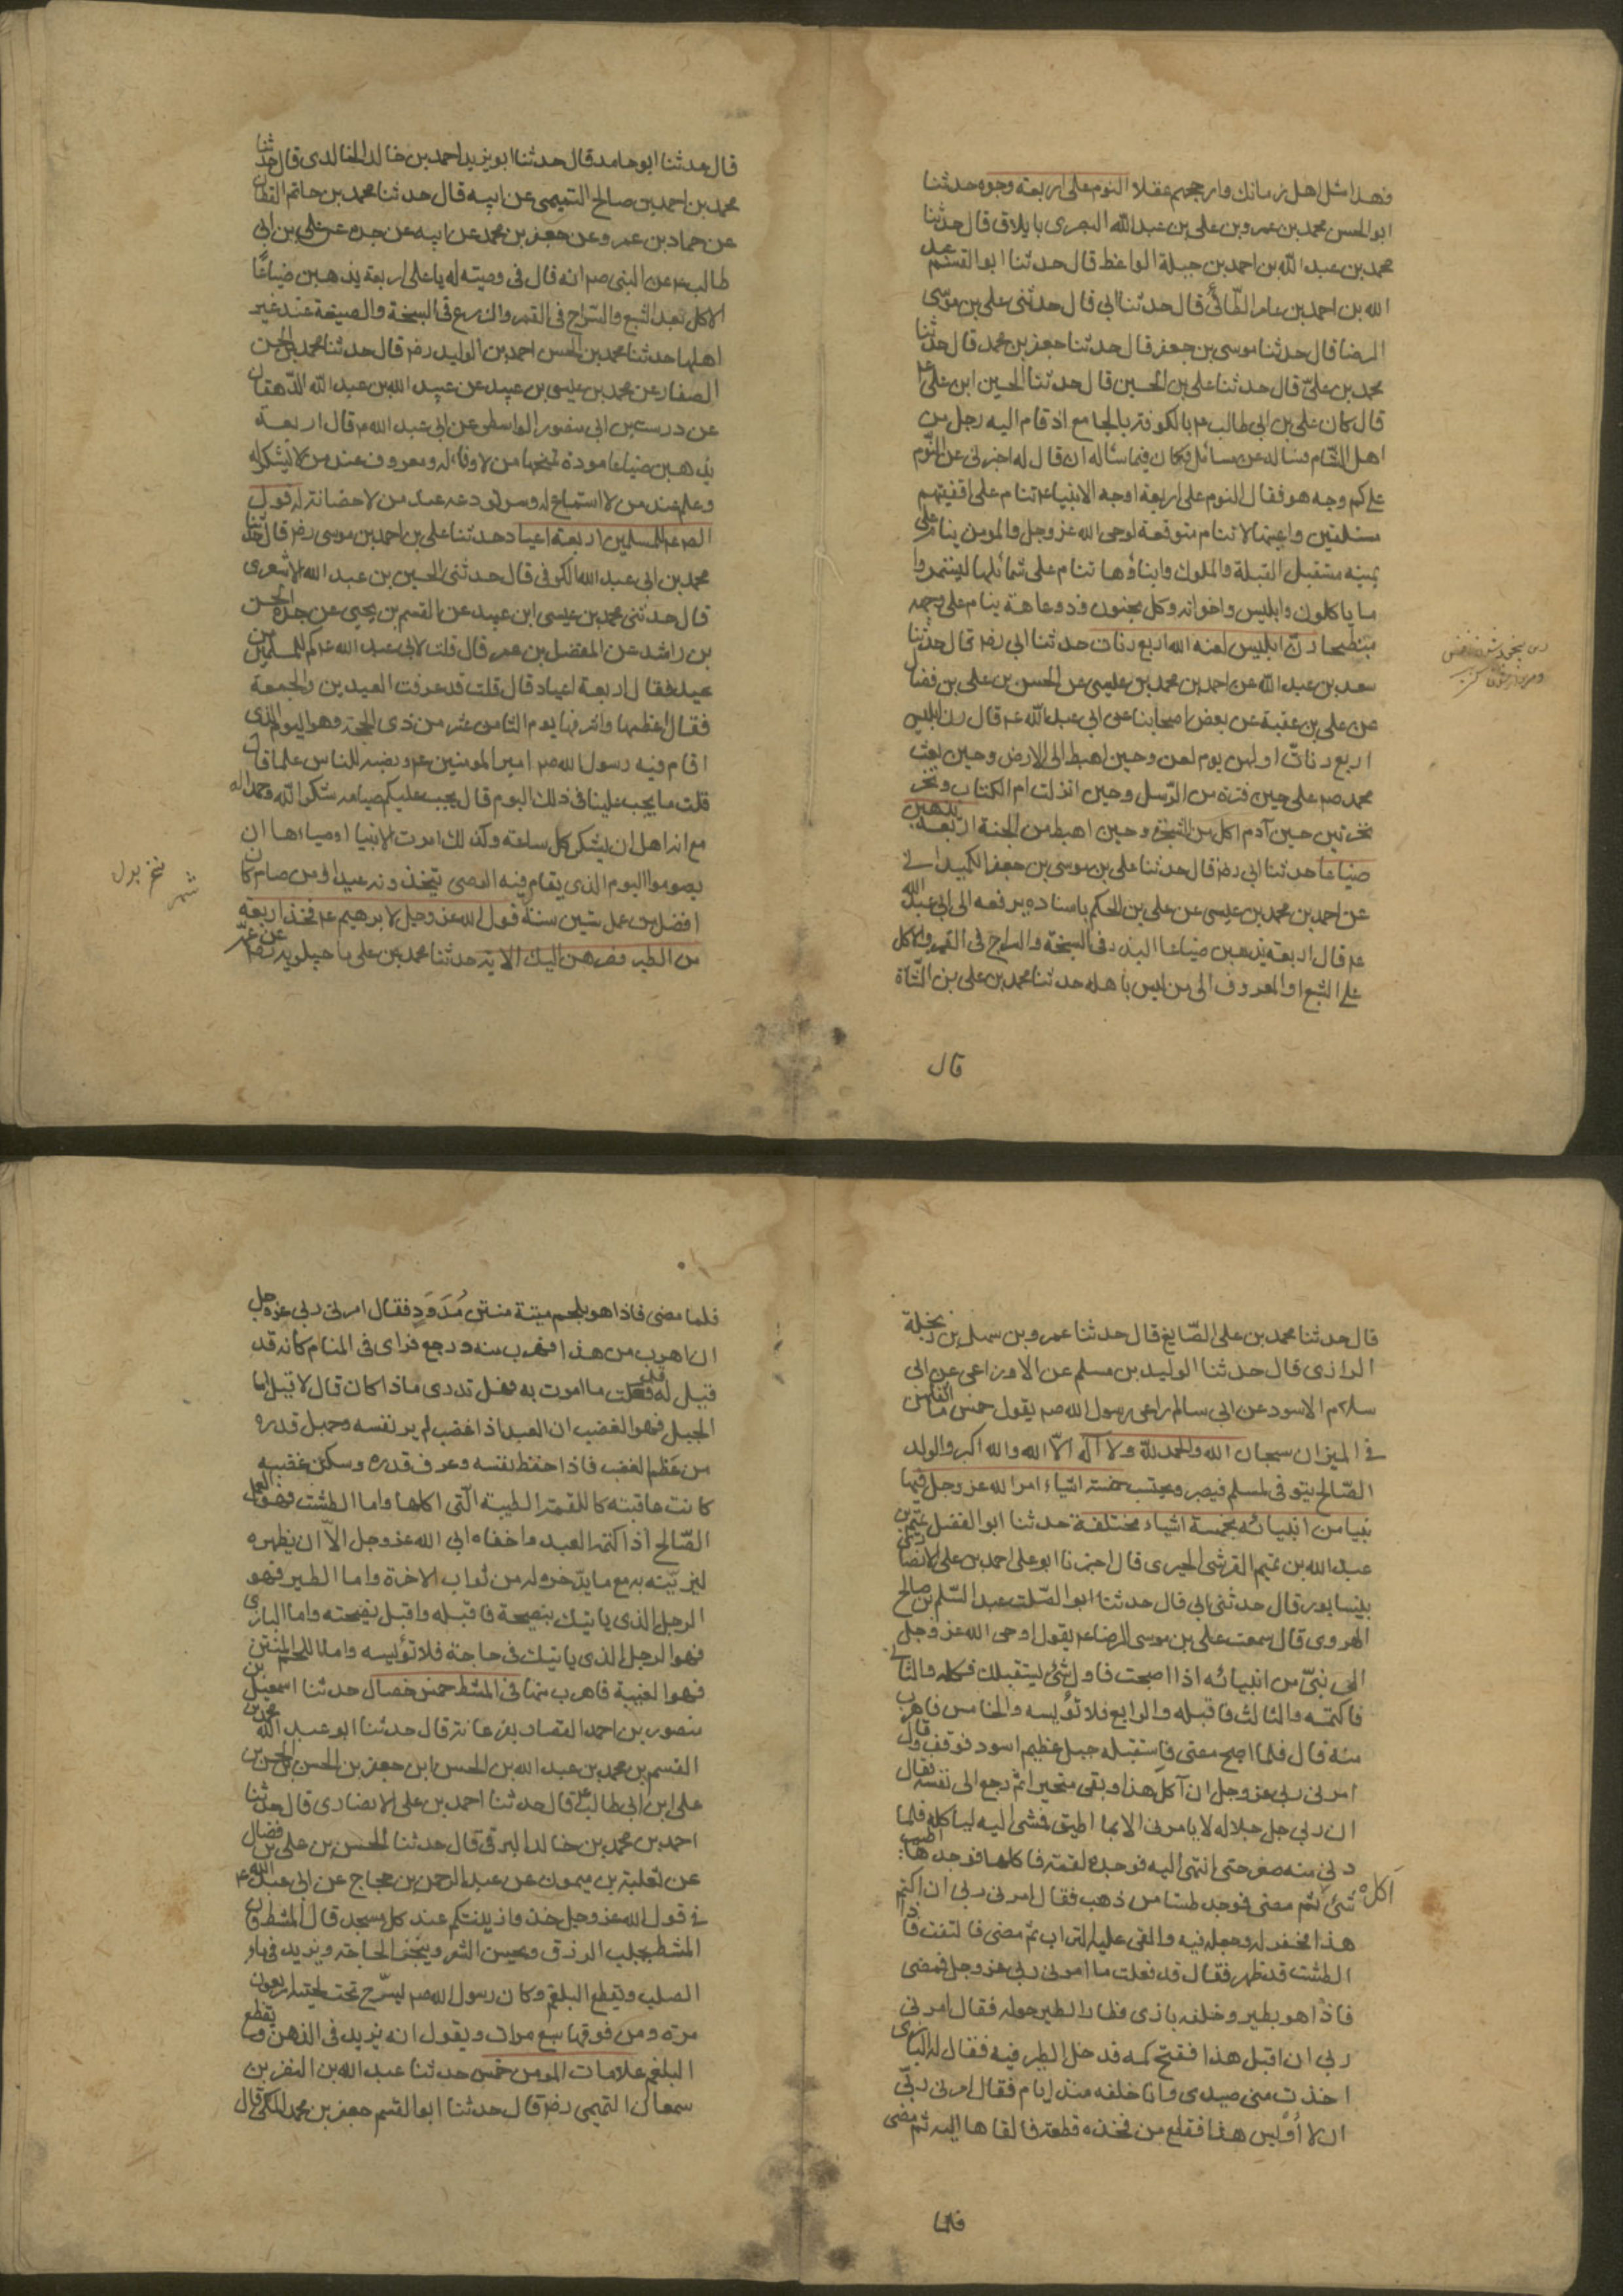 فهذا مثل اهل زمانك وارجحهم عقلا النوم على اربعة وجوه حدثنا
ابو الحسن محمد بن عمرو بن على بن عبد الله البصرى بايلاق قال حدثنا
محمد بن عبد الله بن احمد بن جبلة الواعظ قال حدثنا ابو القسم عبد
الله بن احمد بن عامر الطّائىّ قال حدثنا ابي قال حدثنى على بن موسى
الرضا قال حدثنا موسى بن جعفر قال حدثنا جعفر بن محمد قال حدثنا
محمد بن علىّ قال حدثنا على بن الحسين قال حدثنا الحسين ابن على ع
قال كان على بن ابى طالب ع بالكوفة بالجامع اذ قام اليه رجل من
اهل الشام فساله عن مسائل فكان فيما سأله ان قال له اخبرنى عن النّوم
على كم وجه هو فقال النوم على اربعة اوجه الانبياء ع تنام على اقفيتهم
مستلقين واعينها لا تنام متوقعة لوحى الله عز وجل والمومن ينام على
يمينه مستقبل القبلة والملوك وابناؤها تنام على شمائلها ليستمروا
ما ياكلون وابليس واخوانه وكل مجنون وذو عاهة ينام على وجهه
منبطحا رنّ ابليس لعنه الله اربع رنات حدثنا ابى رضه قال حدثنا
سعد بن عبد الله عن احمد بن محمد بن عيسى عن الحسن بن على بن فضال
عن على بن عقبة عن بعض اصحابنا عن ابى عبد الله ع قال رن ابليس
اربع رنات اولهن يوم لعن وحين اهبط الى الارض وحين بعث
محمد صم على حين فترة من الرّسل وحين انزلت ام الكتاب ونخر
نخرتين حين آدم اكل من الشجرة وحين اهبط من الجنة اربعة يذهبن
ضياعا حدثنا ابى رضه قال حدثنا على بن موسى بن جعفر الكميدانى
عن احمد بن محمد بن عيسى عن على بن الحكم باسناده يرفعه الى ابى عبد الله
ع قال اربعة يذهبن ضياعا البذر فى السبخة والسراج فى القمر والاكل
على الشبع والمعروف الى من ليس باهله حدثنا محمد بن على بن الشّاة
قال
قال حدثنا ابو حامد قال حدثنا ابو يزيد احمد بن خالد الخالدى قال حدثنا
محمد بن احمد بن صالح التميمى عن ابيه قال حدثنا محمد بن حاتم القطان
عن حماد بن عمرو عن جعفر بن محمد عن ابيه عن جده عن على بن ابى
طالب ع عن النبى صم انه قال فى وصيته له يا على اربعة يذهبن ضياعًا
الاكل بعد الشبع والسّراج فى القمر والزرع فى السبخة والصنيعة عند غير
اهلها حدثنا محمد بن الحسن احمد بن الوليد رضه قال حدثنا محمد بن الحسن
الصفار عن محمد بن عيسى بن عبيد عن عبيد الله بن عبد الله الدّهقان
عن درست بن ابى منصور الواسطى عن ابى عبد الله ع قال اربعة
يذهبن ضياعا مودة تمنحها من لا وفاء له ومعروف عند من لا يشكر له
وعلم عند من لا استماع له وسر تودعه عند من لا حضانة له قول
الصم ع للمسلمين اربعة اعياد حدثنا على بن احمد بن موسى رضه قال حدثنا
محمد بن ابى عبد الله الكوفى قال حدثنى الحسين بن عبد الله الاشعرى
قال حدثنى محمد بن عيسى ابن عبيد عن القسم بن يحيى عن جده الحسن
بن راشد عن المفضل بن عمر قال قلت لابى عبد الله ع كم للمسلمين من
عيد فقال اربعة اعياد قال قلت قد عرفت العيدين والجمعة
فقال اعظمها واشرفها يوم الثامن عشر من ذى الحجة وهو اليوم الذى
اقام فيه رسول الله صم امير المومنين ع ونصبه للناس علما قال
قلت ما يجب علينا فى ذلك اليوم قال يجب عليكم صيامه شكرا لله وحمدا له
مع انه اهل ان يشكر كل ساعة وكذلك امرت الانبيا اوصياءها ان
يصوموا اليوم الذى يقام فيه الوصى يتخذونه عيدا ومن صامه كان
افضل من عمل ستين سنة قول الله عز وجل لابرهيم ع فخذ اربعة
من الطير فصرهن اليك الاية حدثنا محمد بن على ماجيلويه رضه عن عمّه
قال حدثنا محمد بن على الصّايغ قال حدثنا عمرو بن سهل بن زنجلة
الرازى قال حدثنا الوليد بن مسلم عن الاوزاعى عن ابى
سلام الاسود عن ابى سالم راعى رسول الله صم يقول خمس ما اثقلهن
فى الميزان سبحان الله والحمد للّه ولا اله الاّ الله والله اكبر والولد
الصّالح يتوفى لمسلم فيصبر ويحتسب خمسة اشياء امر الله عز وجل فيها
نبيا من انبيائه بخمسة اشياء مختلفة حدثنا ابو الفضل تميم بن
عبد الله بن تميم القرشى الحيرى قال اخبرنا ابو على احمد بن على الانصارى
بنيسابور قال حدثنى ابى قال حدثنا ابو الصّلت عبد السّلم بن صالح
الهروى قال سمعت على بن موسى الرضا ع يقول اوحى الله عز وجل
الى نبىّ من انبيائه اذا اصبحت فاول شئ يستقبلك فكله والثانى
فاكتمه والثالث فاقبله والرابع فلا تؤيسه والخامس فاهرب
منه قال فلما اصبح مضى فاستقبله جبل عظيم اسود فوقف وقال
امرنى ربى عز وجل ان آكل هذا وبقى متحيرا ثمّ رجع الى نفسه فقال
ان ربى جل جلاله لا يامرنى الا بما اطيق فمشى اليه لياكله فلما
دنى منه صغر حتى انتهى اليه فوجده لقمة فاكلها فوجدها اطيب
شئ اكله ثم مضى فوجد طستا من ذهب فقال امرنى ربى ان اكتم
هذا فحفر له وجعله فيه والقى عليه التراب ثمّ مضى فالتفت فاذا
الطشت قد ظهر فقال قد فعلت ما امرنى ربى عز وجل فمضى
فاذا هو بطير وخلفه بازى فطار الطير حوله فقال امرنى
ربى ان اقبل هذا ففتح كمه فدخل الطير فيه فقال له البازى
اخذت منى صيدى وانا خلفه منذ ايام فقال امرنى ربىّ
ان لا أويس هذا فقطع من فخذه قطعة فالقاها اليه ثم مضى
فلما
فلما مضى فاذا هو بلحم ميتة منتن مُدَوَدٍ فقال امرنى ربى عز وجل
ان اهرب من هذا فهرب منه ورجع فراى فى المنام كانه قد
قيل له قد فعلت ما امرت به فهل تدرى ماذا كان قال لا قيل اما
الجبل فهو الغضب ان العبد اذا غضب لم ير نفسه وجهل قدره
من عظم الغضب فاذا حفظ نفسه وعرف قدره وسكن غضبه
كانت عاقبته كاللقمة الطيبة الّتى اكلها واما الطشت فهو العمل
الصّالح اذا كتمه العبد واخفاه ابى الله عز وجل الاّ ان يظهره
ليزيّنه به مع ما يدّخر له من ثواب الاخرة واما الطير فهو
الرجل الذى ياتيك بنصيحة فاقبله واقبل نصيحته واما البازى
فهو الرجل الذى ياتيك فى حاجة فلا تؤيسه واما اللحم المنتن
فهو الغيبة فاهرب منها فى المشط خمس خصال حدثنا اسمعيل بن
منصور بن احمد القصار بفرغانة قال حدثنا ابو عبد الله محمد بن
القسم بن محمد بن عبد الله بن الحسن ابن جعفر بن الحسن بن الحسن بن
على ابن ابى طالب ع قال حدثنا احمد بن على الانصارى قال حدثنا
احمد بن محمد بن خالد البرقى قال حدثنا الحسن بن على بن فضال
عن ثعلبة بن ميمون عن عبد الرحمن بن حجاج عن ابى عبد الله ع
فى قول الله عز وجل خذوا زينتكم عند كل مسجد قال المشط فان
المشط يجلب الرزق ويحسن الشعر وينجز الحاجة ويزيد فى ماء
الصلب ويقطع البلغم وكان رسول الله صم يسرّح تحت لحيته اربعون
مرة ومن فوقها سبع مرات ويقول انه يزيد فى الذهن ويقطع
البلغم علامات المومن خمس حدثنا عبد الله بن النضر بن
سمعان التميمى رضه قال حدثنا ابو القسم جعفر بن محمد المكى قال